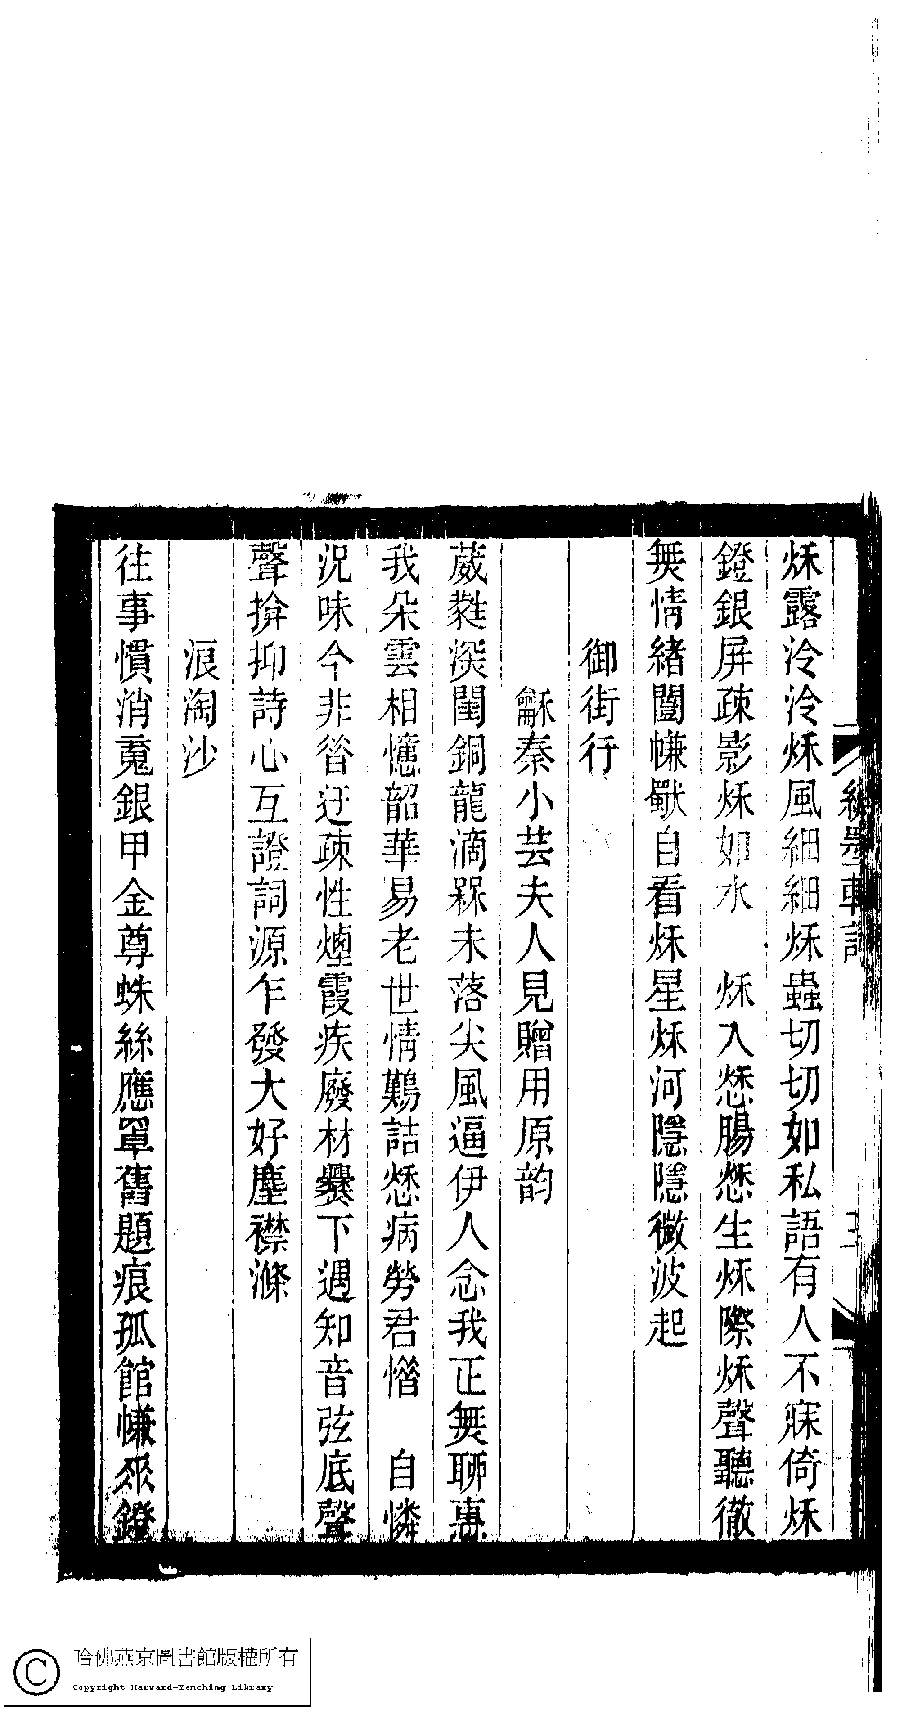 秌露泠泠秌風細細秌蟲切切如私語有人不寐倚秌
鐙銀屏疎影秌如水　秌入愁腸愁生秌際秌聲聽徹
無情緒闓㡘獸自看秌星秌河隱隱微波起
御街行
龢秦小芸夫人見贈用原韵
葳蕤深閨銅龍滴槑未落尖風逼伊人念我正無聊惠
我朵雲相憶韶華易老世情難詰愁病勞君惜　自憐
況味今非昝迂疎性煙霞疾廢材爨下遇知音弦底聲
聲揜抑詩心互證詞源乍發大好塵襟滌
浪淘沙
往事慣消䰟銀甲金尊蛛絲應罩舊題痕孤館㡘衣鐙
墨軒詞
哈佛燕京圖書館版權所有
Copyright Harvard-Yenching Library